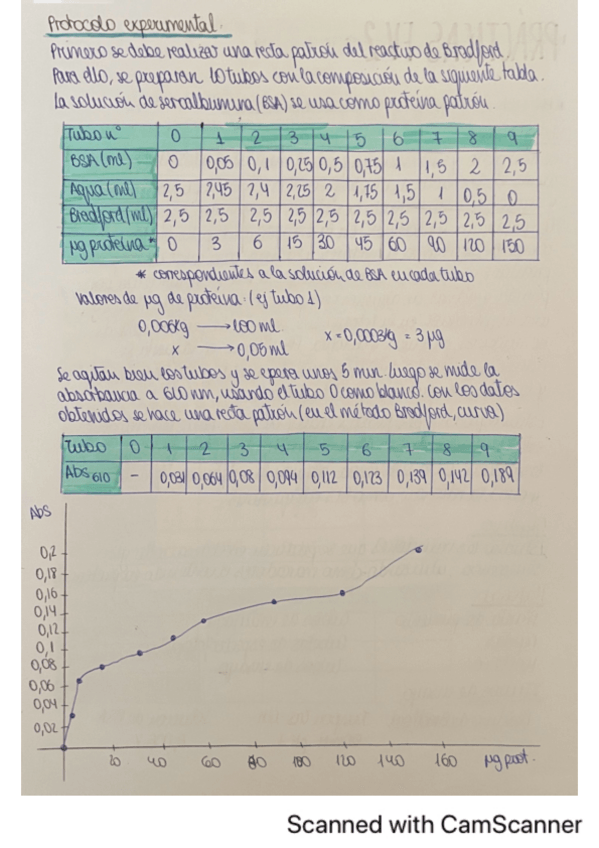 Protocolo experimental.
Primero se debe realizar una recta patrón del reactivo de Bradford.
Para ello, se preparan 10 tubos con la composición de la siguiente tabla.
La solución de seralbúmina (BSA) se usa como proteína patrón.
Tubo nº 0 1 2 3 4 5 6 7 8 9
BSA (ml) 0 0,05 0,1 0,25 0,5 0,75 1 1,5 2 2,5
Agua (ml) 2,5 2,45 2,4 2,25 2 1,75 1,5 1 0,5 0
Bradford (ml) 2,5 2,5 2,5 2,5 2,5 2,5 2,5 2,5 2,5 2,5
µg proteína* 0 3 6 15 30 45 60 90 120 150
* correspondientes a la solución de BSA en cada tubo
Valores de µg de proteína. (ej tubo 1)
0,006g → 100 ml
x → 0,05 ml x = 0,0003g = 3 µg
Se agitan bien los tubos y se espera unos 5 min. Luego se mide la
absorbancia a 610 nm, usando el tubo 0 como blanco. Con los datos
obtenidos se hace una recta patrón (en el método Bradford, curva)
Tubo 0 1 2 3 4 5 6 7 8 9
Abs 610 - 0,031 0,064 0,08 0,094 0,112 0,123 0,139 0,142 0,189
Abs
0,2
0,18
0,16
0,14
0,12
0,1
0,08
0,06
0,04
0,02
20 40 60 80 100 120 140 160 µg prot.
Scanned with CamScanner